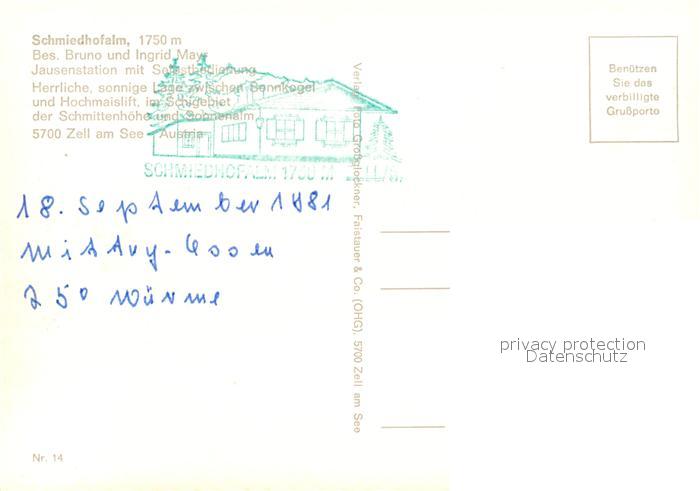 Schmiedhofalm, 1750 m
Bes. Bruno und Ingrid Mayr
Jausenstation mit Selbstbedienung
Herrliche, sonnige Lage zwischen Sonnkogel
und Hochmaislift, im Schigebiet
der Schmittenhöhe und Sonnenalm
5700 Zell am See - Austria
SCHMIEDHOFALM 1750 M ZELL/S.
18. September 1981
Mittag-
25° Wärme
Nr. 14
Verlag Foto Großglockner, Faistauer & Co. (OHG), 5700 Zell am See
Benützen
Sie das
verbilligte
Grußporto
privacy protection
Datenschutz